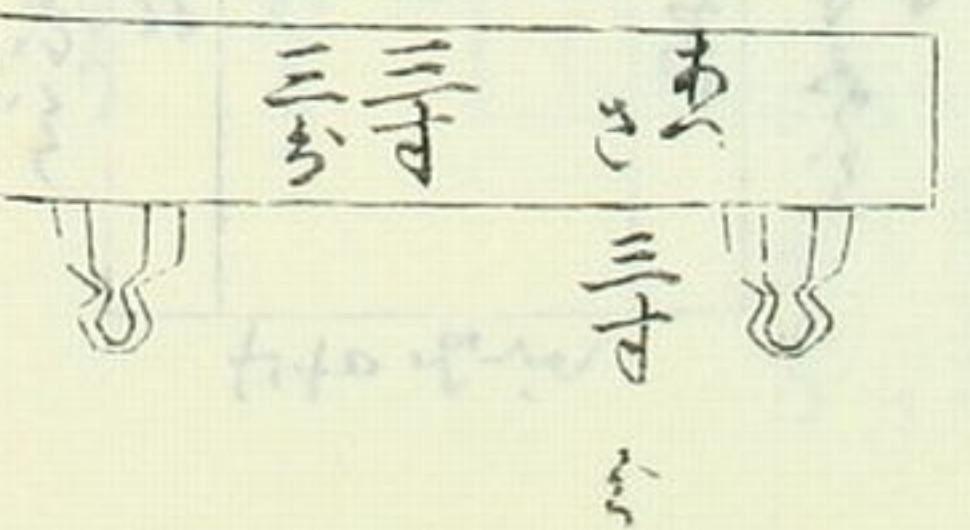 あつ
さ
三寸
三寸
三分